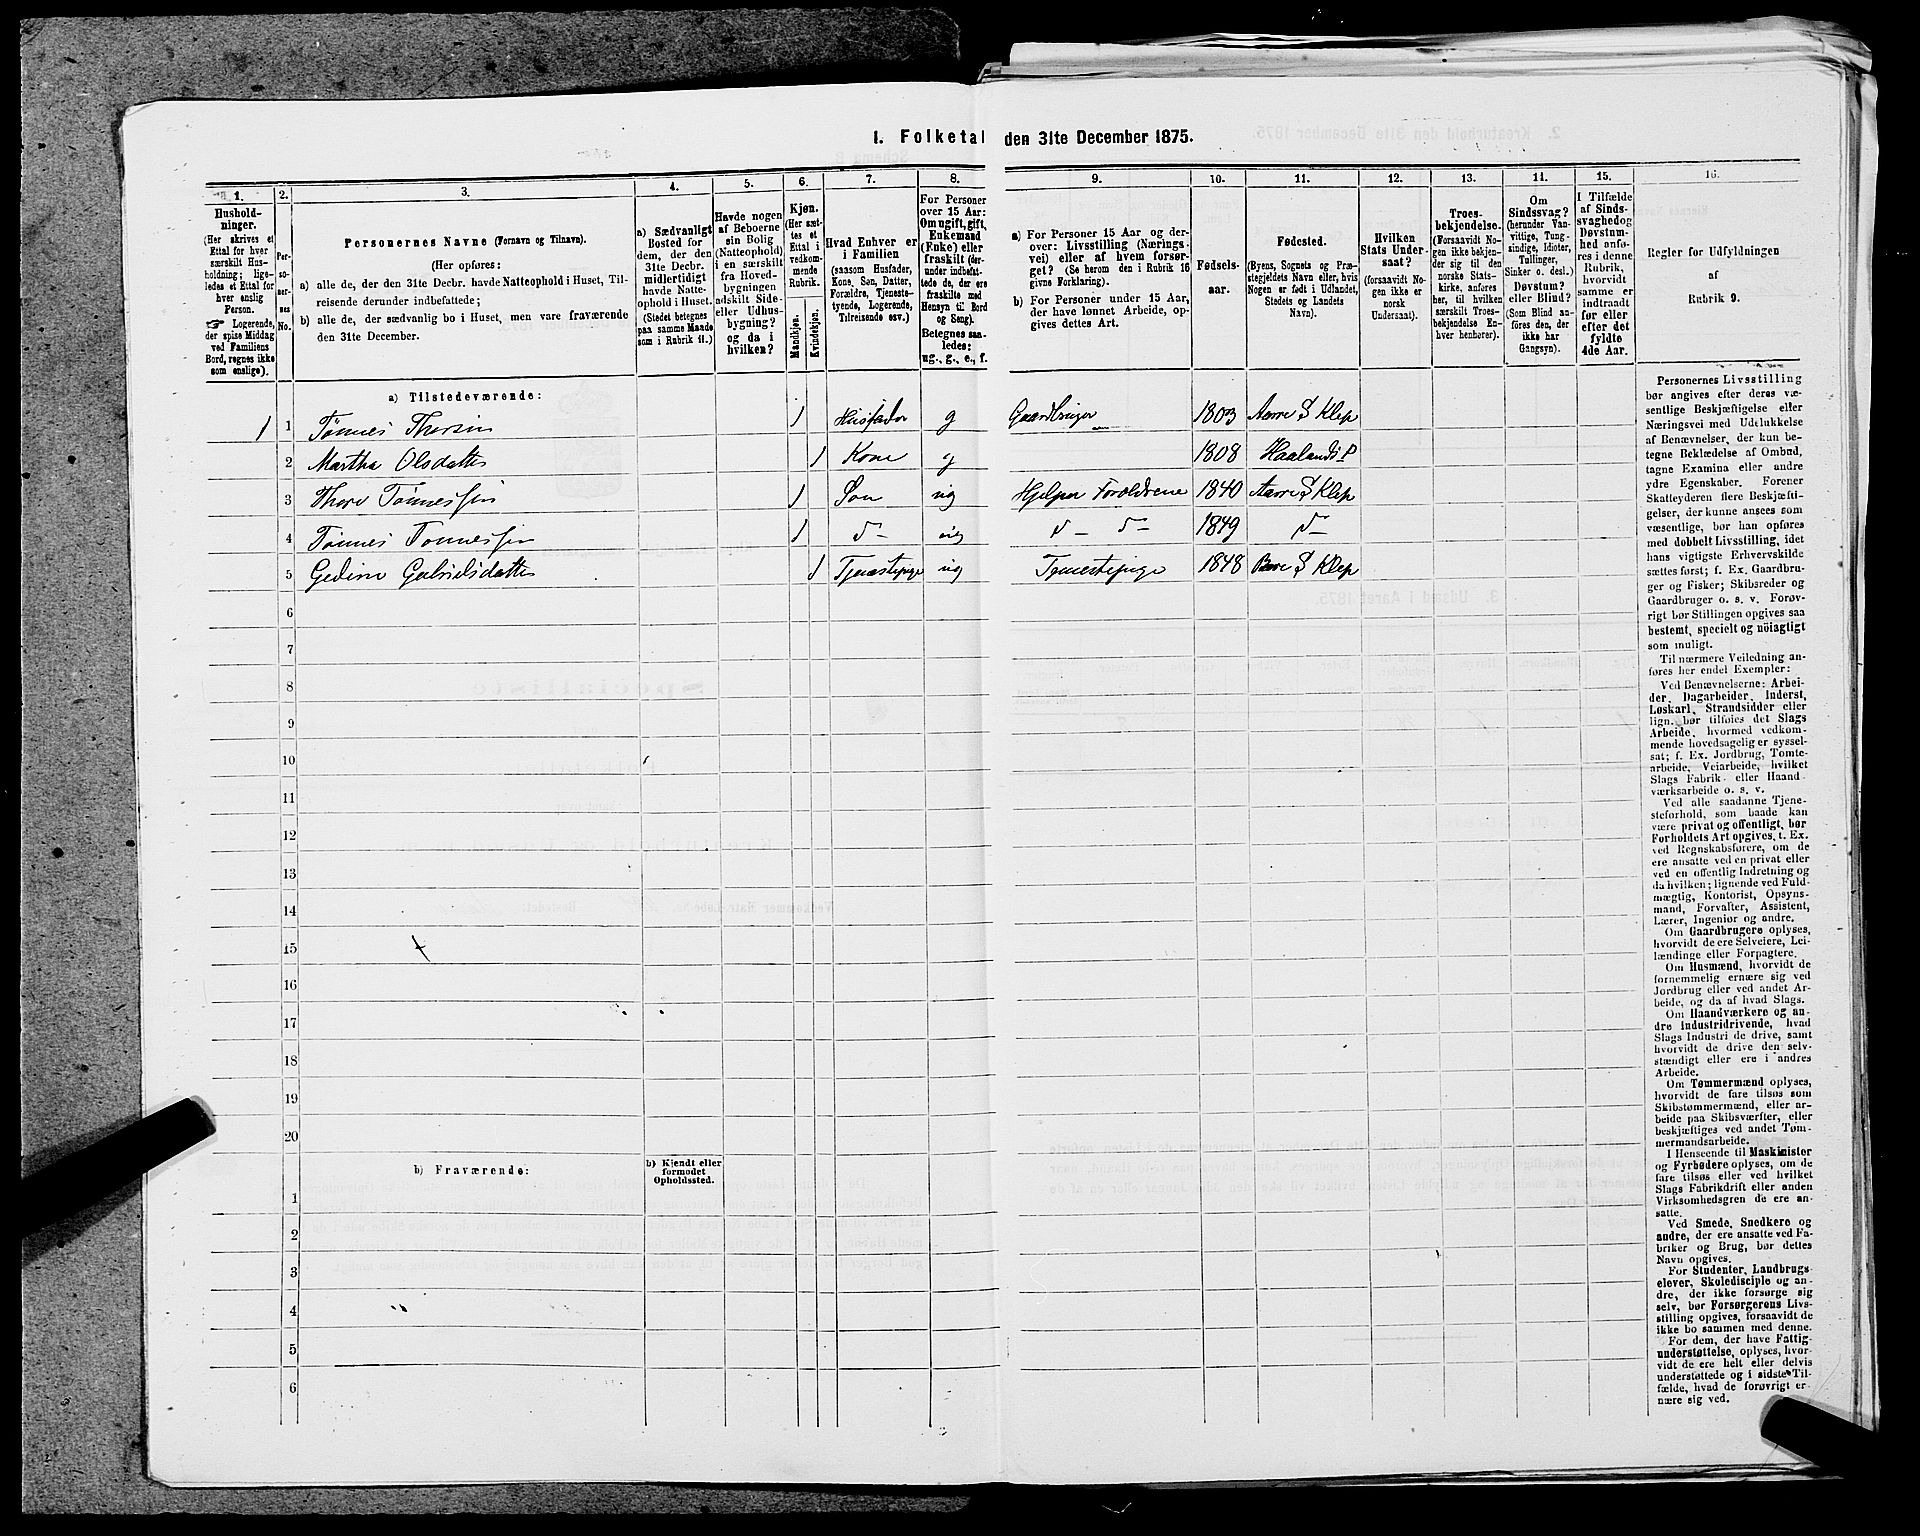 1. Folketal den 31te December 1875.
1. 2. 3. 4. 5. 6. 7. 8. 9. 10. 11. 12. 13. 11. 15. 16.
Hushold-
ninger.
(Her skrives et
Ettal for hver
særskilt Hus-
holdning; lige-
ledes et Ettal for
hver enslig
Person.
☞ Logerende,
der spise Middag
ved Familiens
Bord, regnes ikke
som enslige).
Per-
so-
ner-
nes
No.
Personernes Navne (Fornavn og Tilnavn).
(Her opføres:
a) alle de, der den 31te Decbr. havde Natteophold i Huset, Til-
reisende derunder indbefattede;
b) alle de, der sædvanlig bo i Huset, men vare fraværende
den 31te December.
a) Sædvanligt
Bosted for
dem, der den
31te Decbr.
midlertidigt
havde Natte-
ophold i Huset.
(Stedet betegnes
paa samme Maade
som i Rubrik 11.)
Havde nogen
af Beboerne
sin Bolig
(Natteophold)
i en særskilt
fra Hoved-
bygningen
adskilt Side-
eller Udhus-
bygning?
og da i
hvilken?
Kjøn.
(Her sæt-
tes et
Ettal i
vedkom-
mende
Rubrik.
Mandkjøn.
Kvindekjøn.
Hvad Enhver er
i Familien
(saasom Husfader,
Kone, Søn, Datter,
Forældre, Tjeneste-
tyende, Logerende,
Tilreisende osv.)
For Personer
over 15 Aar:
Om ugift, gift,
Enkemand
(Enke) eller
fraskilt (der-
under indbefat-
tede de, der ere
fraskilte med
Hensyn til Bord
og Seng).
Betegnes saa-
ledes:
ug., g., e., f.
a) For Personer 15 Aar og der-
over: Livsstilling (Nærings-
vei) eller af hvem forsør-
get? (Se herom den i Rubrik 16
givne Forklaring).
b) For Personer under 15 Aar,
der have lønnet Arbeide, op-
gives dettes Art.
Fødsels-
aar.
Fødested.
(Byens, Sognets og Præ-
stegjeldets Navn eller, hvis
Nogen er født i Udlandet,
Stedets og Landets
Navn).
Hvilken
Stats Under-
saat?
(forsaavidt No-
gen ikke er
norsk
Undersaat).
Troes-
bekjendelse.
(Forsaavidt No-
gen ikke bekjen-
der sig til den
norske Stats-
kirke, anføres
her, til hvilken
særskilt Troes-
bekjendelse En-
hver henhører).
Om
Sindssvag?
(herunder Van-
vittige, Tung-
sindige, Idioter,
Tullinger,
Sinker o. desl.)
Døvstum?
eller Blind?
(Som Blind an-
føres den, der
ikke har
Gangsyn).
I Tilfælde
af Sinds-
svaghed og
Døvstum-
hed anfø-
res i denne
Rubrik,
hvorvidt
samme er
indtraadt
før eller
efter det
fyldte
4de Aar.
Regler for Udfyldningen
af
Rubrik 9.
a) Tilstedeværende:
1 1 Tønnes Thorsen 1 Husfader g Gaardbruger 1803 Aarre S Klep
2 Martha Olsdatter 1 Kone g 1808 Haalands P
3 Thore Tønnessen 1 Søn ug Hjelper Forældrene 1840 Aarre S Klep
4 Tønnes Tønnessen 1 d- ug d - d - 1849 d-
5 Gedine Gabrielsdatter 1 Tjenestepige ug Tjenestepige 1848 Bore S Klep
6
7
8
9
10
11
12
13
14
15
16
17
18
19
20
b) Fraværende: b) Kjendt eller
formodet
Opholdssted.
1
2
3
4
5
6
Personernes Livsstilling
bør angives efter deres væ-
sentlige Beskjæftigelse eller
Næringsvei med Udelukkelse
af Benævnelser, der kun be-
tegne Beklædelse af Ombud,
tagne Examina eller andre
ydre Egenskaber. Forener
Skatteyderen flere Beskjæfti-
gelser, der kunne ansees som
væsentlige, bør han opføres
med dobbelt Livsstilling, idet
hans vigtigste Erhvervskilde
sættes først; f. Ex. Gaardbru-
ger og Fisker; Skibsreder og
Gaardbruger o. s. v. Forøv-
rigt bør Stillingen opgives saa
bestemt, specielt og nöiagtigt
som muligt.
Til nærmere Veiledning an-
føres her endel Exempler:
Ved Benævnelserne: Arbei-
der, Dagarbeider, Inderst,
Løskarl, Strandsidder eller
lign. bør tilføies det Slags
Arbeide, hvormed vedkom-
mende hovedsagelig er syssel-
sat; f. Ex. Jordbrug, Tomte-
arbeide, Veiarbeide, hvilket
Slags Fabrik- eller Haand-
værksarbeide o. s. v.
Ved alle saadanne Tjene-
steforhold, som baade kan
være privat og offentligt, bør
Forholdets Art opgives, t. Ex.
ved Regnskabsførere, om de
ere ansatte ved en privat eller
ved en offentlig Indretning og
da hvilken; lignende ved Fuld-
mægtig, Kontorist, Opsyns-
mand, Forvalter, Assistent,
Lærer, Ingeniør og andre.
Om Gaardbrugere oplyses,
hvorvidt de ere Selveiere, Lei-
lændinge eller Forpagtere.
Om Husmænd, hvorvidt de
fornemmelig ernære sig ved
Jordbrug eller ved andet Ar-
beide, og da af hvad Slags.
Om Haandværkere og an-
dre Industridrivende, hvad
Slags Industri de drive, samt
hvorvidt de drive den selv-
stændigt eller ere i andres
Arbeide.
Om Tømmermænd oplyses,
hvorvidt de fare tilsøs som
Skibstømmermænd, eller ar-
beide paa Skibsværfter, eller
beskjæftiges ved andet Tøm-
mermandsarbeide.
I Henseende til Maskinister
og Fyrbødere oplyses, om de
fare tilsøs eller ved hvilket
Slags Fabrikdrift eller anden
Virksomhedsgren de ere an-
satte.
Ved Smede, Snedkere og
andre, der ere ansatte ved Fa-
briker og Brug, bør dettes
Navn opgives.
For Studenter, Landbrugs-
elever, Skoledisciple og an-
dre, der ikke forsørge sig
selv, bør Forsørgerens Livs-
stilling opgives, forsaavidt de
ikke bo sammen med denne.
For dem, der have Fattig-
understøttelse, oplyses, hvor-
vidt de ere helt eller delvis
understøttede og i sidste Til-
fælde, hvad de forøvrigt er-
nære sig ved.